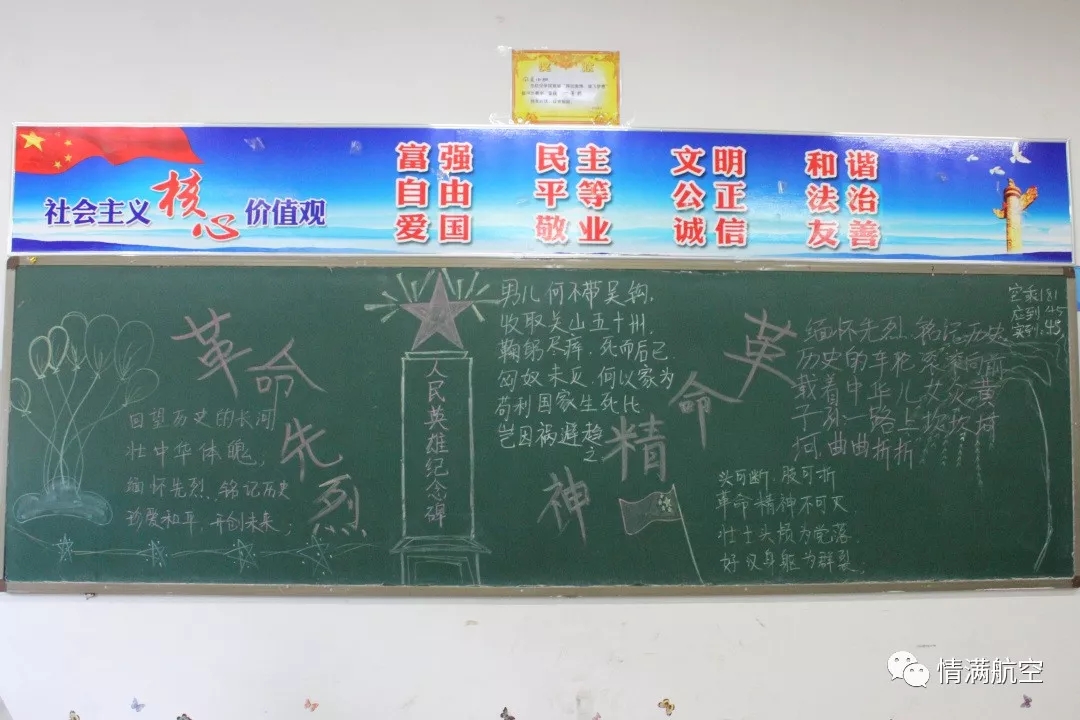 社会主义核心价值观
富强 民主 文明 和谐
自由 平等 公正 法治
爱国 敬业 诚信 友善
革命先烈
回望历史的长河
壮中华体魄，
缅怀先烈、铭记历史
珍爱和平，开创未来；
人民英雄纪念碑
男儿何不带吴钩，
收取关山五十州，
鞠躬尽瘁，死而后已
匈奴未灭，何以家为
苟利国家生死比
岂因祸避趋之
革命精神
缅怀先烈，铭记历史
历史的车轮滚滚向前
载着中华儿女炎黄
子孙一路上坎坎坷
坷，曲曲折折
应到：45
实到：45
头可断，肢可折
革命精神不可灭
壮士头颅为党落
好汉身躯为群裂
情满航空